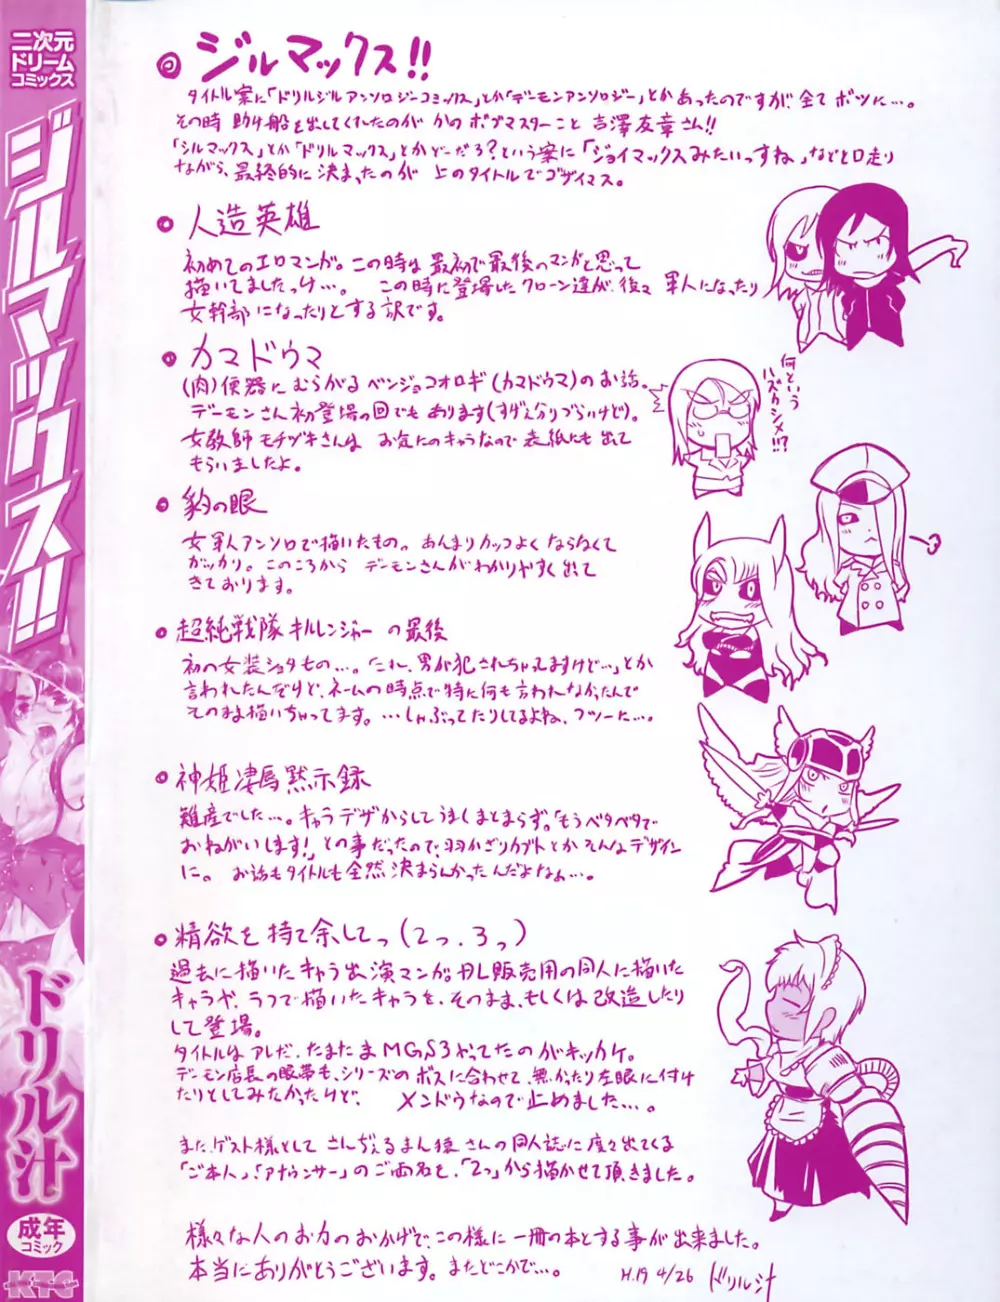 二次元
ドリーム
コミックス
ジルマックス!!
ドリル汁
成年
コミック
KTC
ジルマックス!!
タイトル案に「ドリルジルアンソロジーコミックス」とか「デーモンアンソロジー」とかあったのですが、全てボツに…。
その時助け船を出してくれたのがかのボブマスターこと吉澤友章さん!!
「シルマックス」とか「ドリルマックス」とかどーだろ?という案に「ジョイマックスみたいっすね」などと口走り
ながら、最終的に決まったのが上のタイトルでゴザイマス。
人造英雄
初めてのエロマンガ。この時は最初で最後のマンガと思って
描いてましたっけ…。この時に登場したクローン達が、後々軍人になったり
女幹部になったりとする訳です。
カマドウマ
(肉)便器にむらがるベンジョコオロギ(カマドウマ)のお話。
デーモンさん初登場の回でもあります(すげえ分りづらいけど)。
女教師モチヅキさんはお気にのキャラなので表紙にも出て
もらいましたよ。
何という
ハズカシメ!!?
豹の眼
女軍人アンソロで描いたもの。あんまりカッコよくならなくて
ガッカリ。このころからデーモンさんがわかりやすく出て
きております。
超純戦隊キルレンジャーの最後
初の女装ショタもの…。「これ、男が犯されちゃってますけど…」とか
言われたんだけど、ネームの時点で特に何も言われなかったんで
そのまま描いちゃってます。…しゃぶってたりしてるよね、フツーに…。
神姫凄辱黙示録
難産でした…。キャラデザからしてうまくまとまらず。「もうベタベタで
おねがいします!」との事だったので、羽かざりカブトとかそんなデザイン
に。お話もタイトルも全然決まらんかったんだよなぁ…。
精欲を持て余してっ(2っ、3っ)
過去に描いたキャラ出演マンガ。DL販売用の同人に描いた
キャラや、ラフで描いたキャラを、そのまま、もしくは改造したり
して登場。
タイトルはアレだ、たまたまMGS3やってたのがキッカケ。
デーモン店長の眼帯も、シリーズのボスに合わせて、無かったり左眼に付け
たりとしてみたかったけど、メンドウなので止めました…。
また、ゲスト様としてさんぢぇるまん猿さんの同人誌に度々出てくる
「ご本人」、「アナウンサー」のご両名を、「2っ」から描かせて頂きました。
様々な人のお力のおかげで、この様に一冊の本とする事が出来ました。
本当にありがとうございます。またどこかで…。
H.19 4/26 ドリル汁